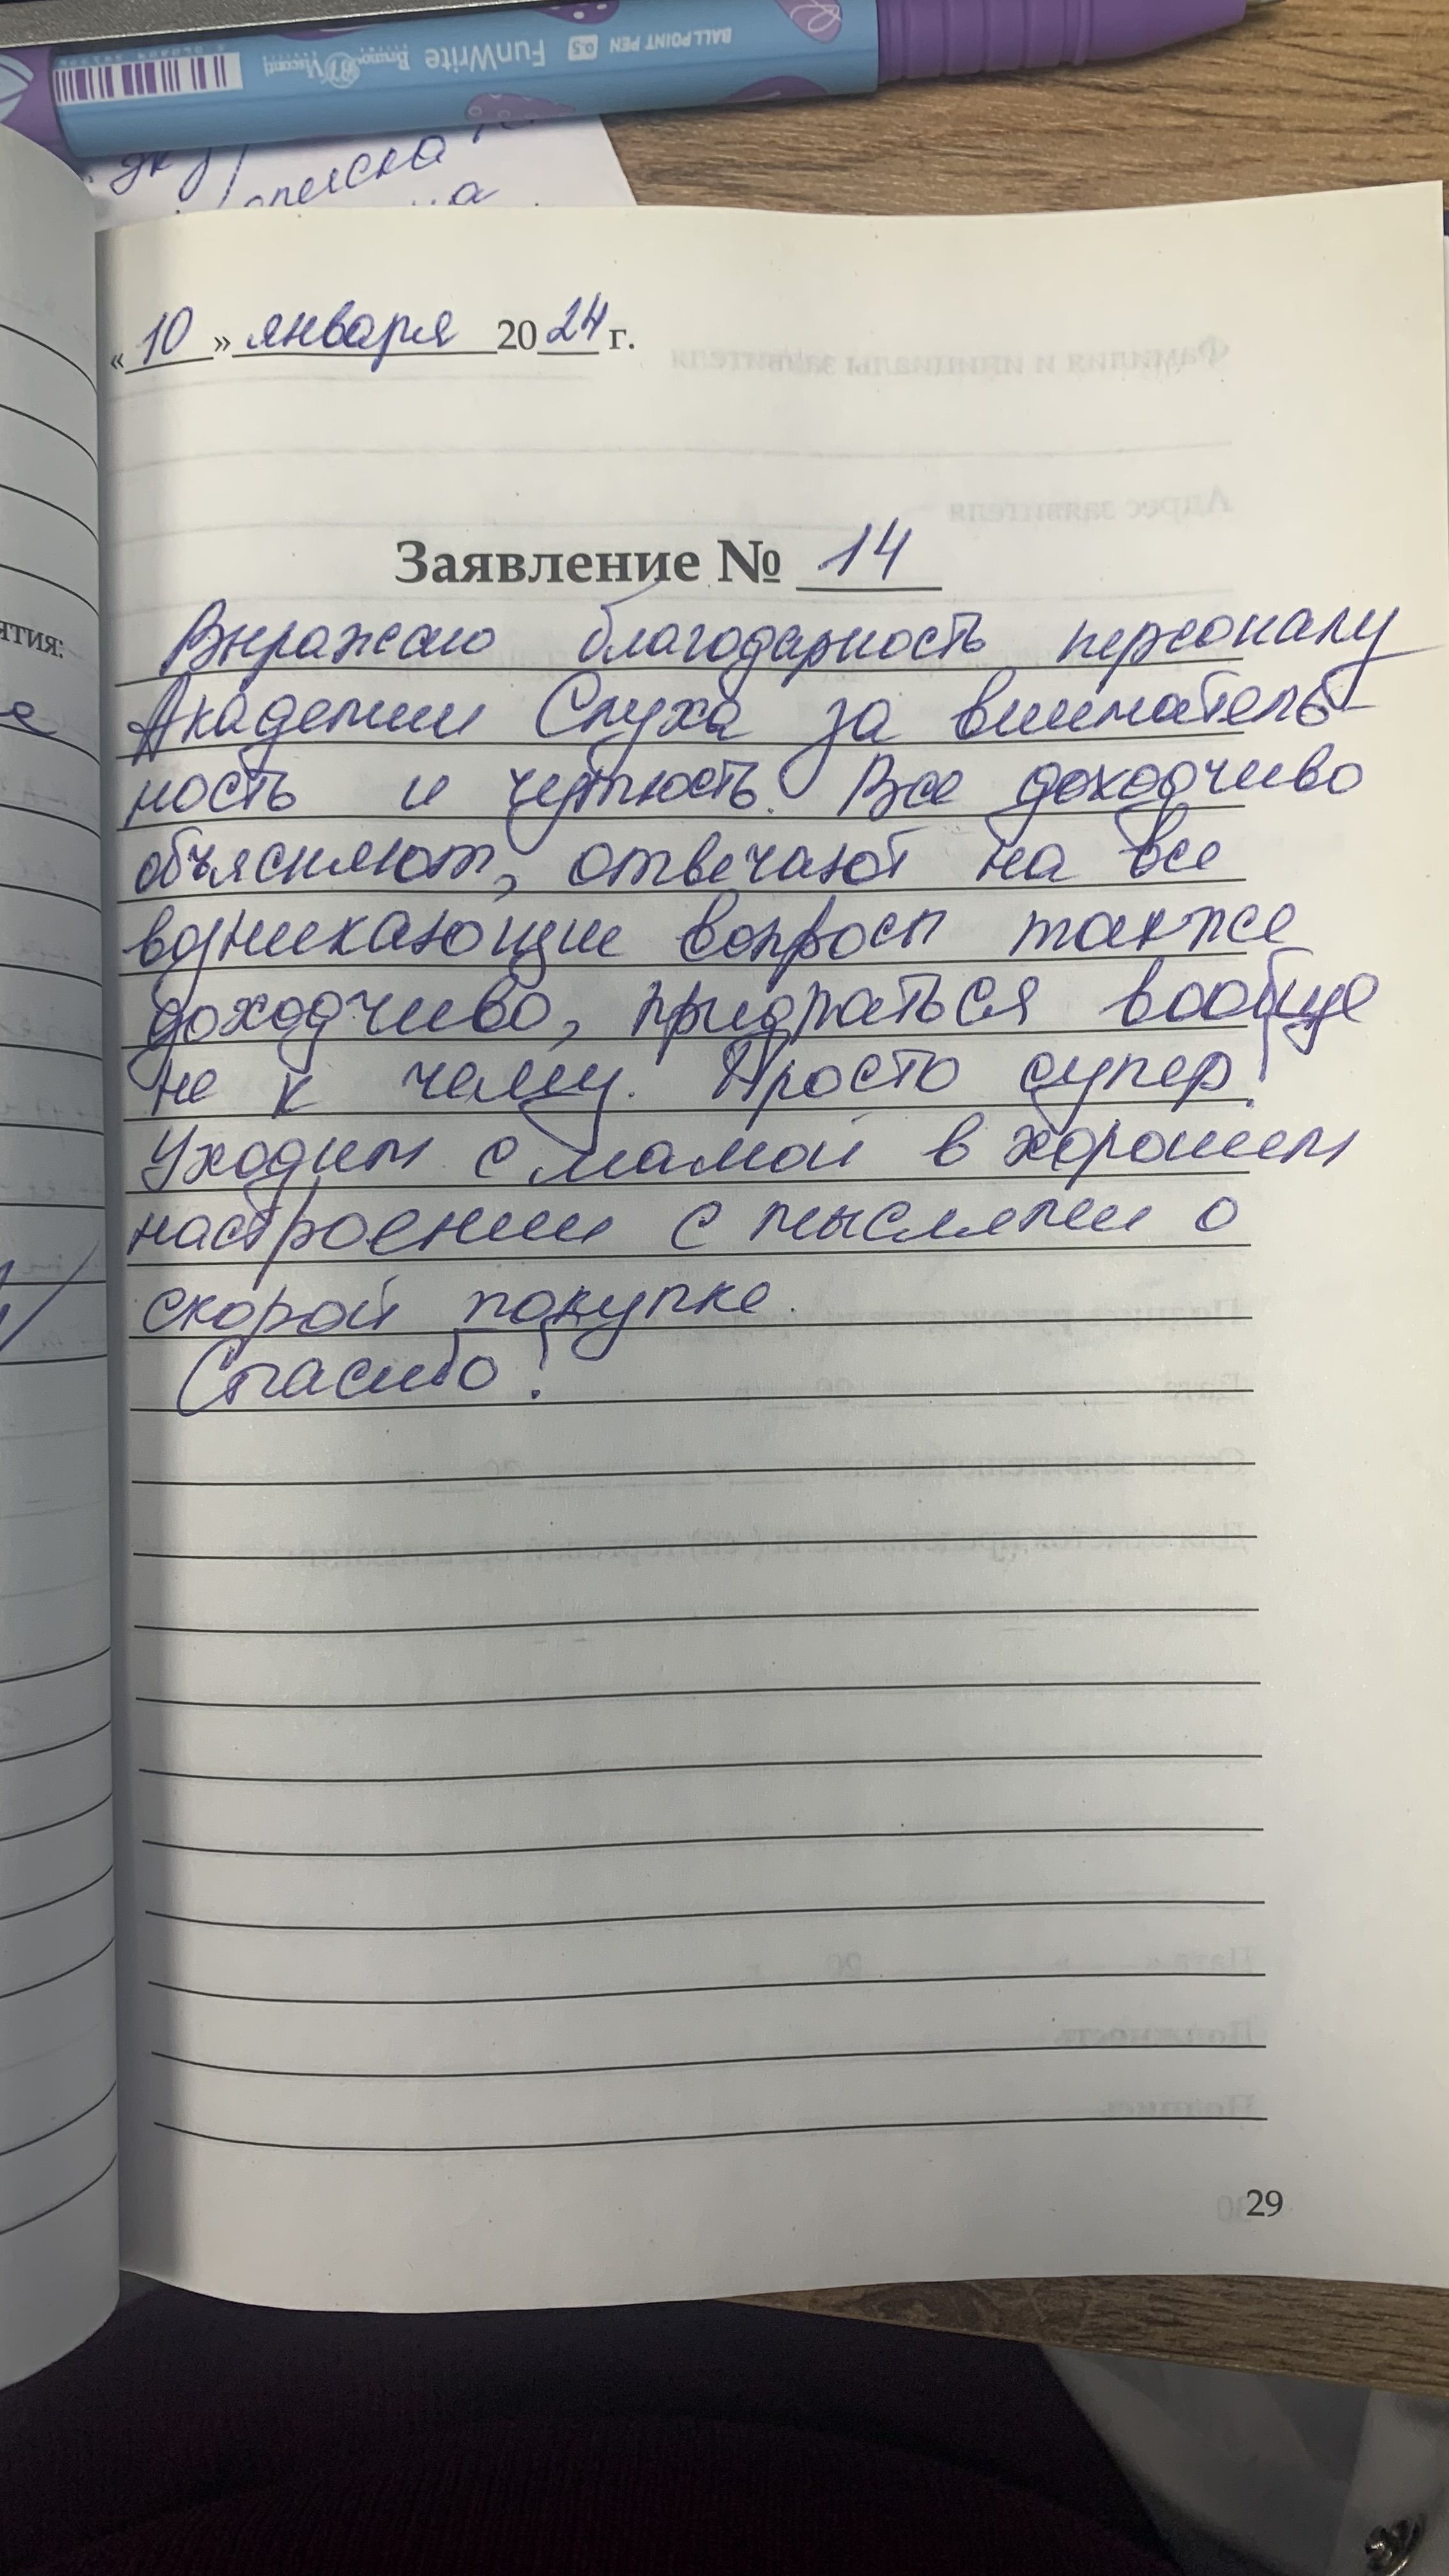 BALLPOINT PEN 0.5 FunWrite Bruno Visconti
«10» января 2024 г.
Заявление № 14
Выражаю благодарность персоналу
Академии Слуха за вниматель-
ность и чуткость. Все доходчиво
объясняют, отвечают на все
возникающие вопросы также
доходчиво, придраться вообще
не к чему. Просто супер!
Уходим с мамой в хорошем
настроении с мыслями о
скорой покупке.
Спасибо!
29